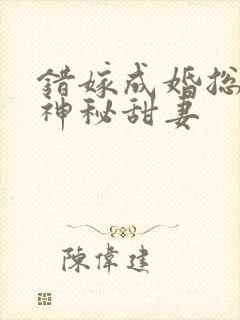 錯嫁成婚总
神秘甜妻
陳偉建